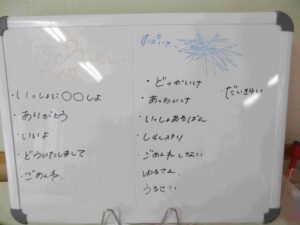 ・いっしょに○○しよ
・ありがとう
・いいよ
・どういたしまして
・ごめんね
・どっかいけ
・あっちいけ
・いっしょあそばん
・ごめんねしない
・ゆるさん
・うるさい
・だいきらい